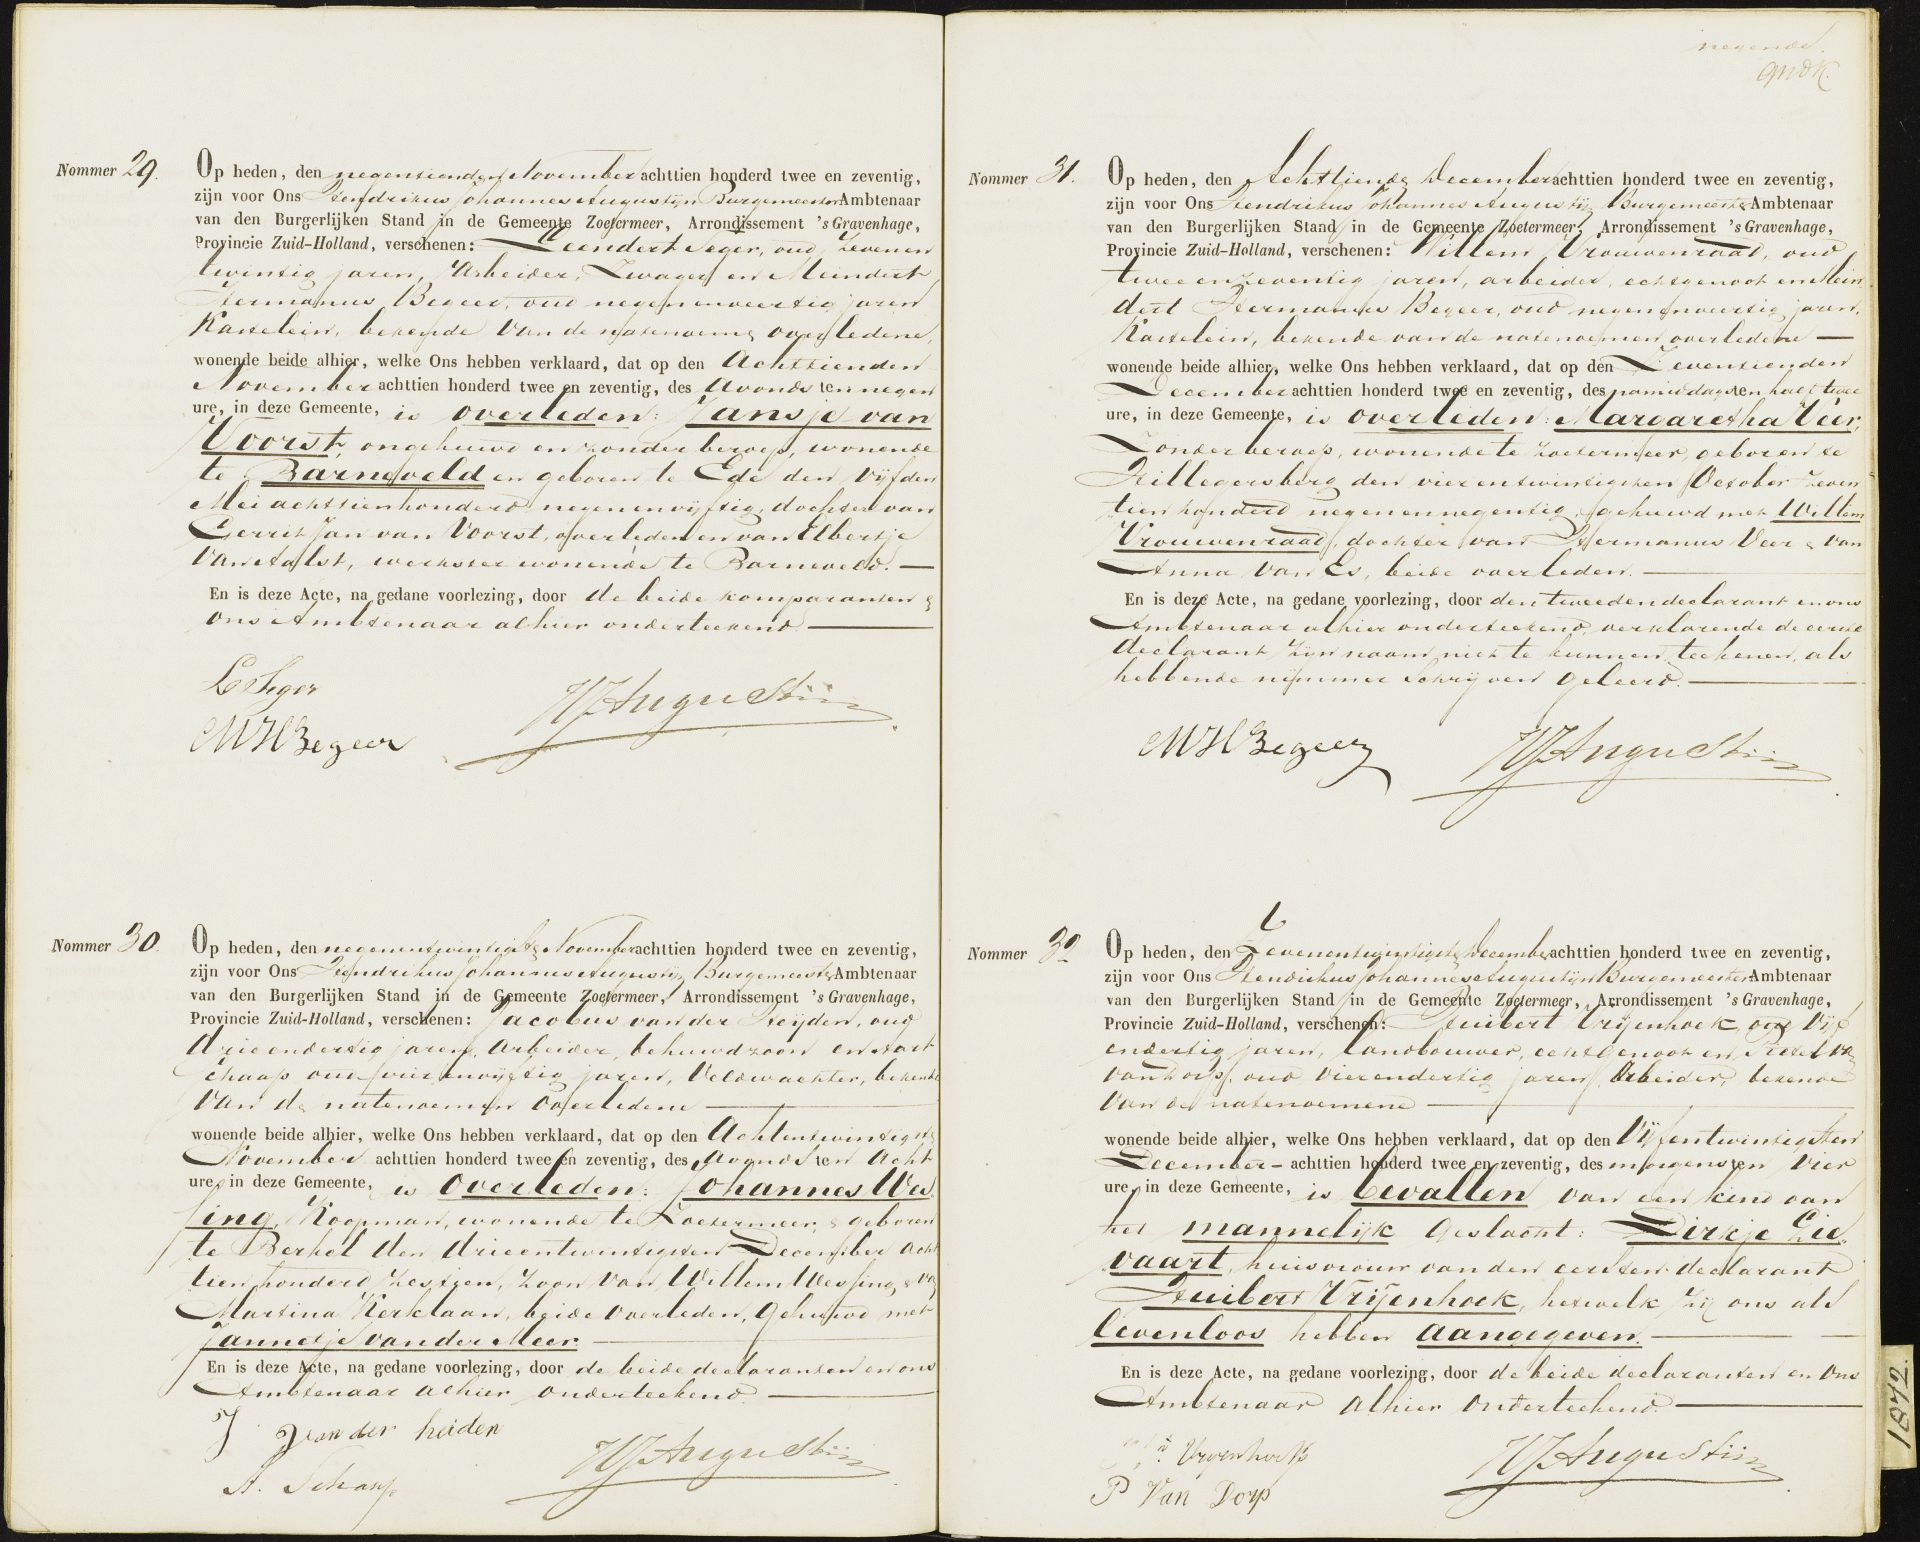 Nommer 29.
Op heden, den negentienden November achttien honderd twee en zeventig,
zijn voor Ons Hendrikus Johannes Augustijn Burgemeester Ambtenaar
van den Burgerlijken Stand in de Gemeente Zoetermeer, Arrondissement 's Gravenhage,
Provincie Zuid-Holland, verschenen: Leendert Seger, oud zevenen
twintig jaren, Arbeider, Zwager en Meindert
Hermanus Begeer, oud negenenveertig jaren
Kastelein, bekende van de natenoemen overledene,
wonende beide alhier, welke Ons hebben verklaard, dat op den Achttienden
November achttien honderd twee en zeventig, des Avonds ten negen
ure, in deze Gemeente, is overleden: Jansje van
Voorst, ongehuwd en zonder beroep, wonende
te Barneveld en geboren te Ede den vijfden
Mei achttienhonderd negenenvijftig, dochter van
Gerrit Jan van Voorst, overleden en van Elbertje
van Aalst, werkster wonende te Barneveld.
En is deze Acte, na gedane voorlezing, door de beide komparanten &
ons Ambtenaar alhier onderteekend
L Seger
MHBegeer
HJAugustijn
Nommer 30.
Op heden, den negenentwintigste November achttien honderd twee en zeventig,
zijn voor Ons Hendrikus Johannes Augustijn Burgemeester Ambtenaar
van den Burgerlijken Stand in de Gemeente Zoetermeer, Arrondissement 's Gravenhage,
Provincie Zuid-Holland, verschenen: Jacobus van der Heijden, oud
drieendertig jaren, Arbeider, behuwdzoon en Aart
Schaap oud vierenvijftig jaren, Veldwachter, bekende
van de natenoemen overledene
wonende beide alhier, welke Ons hebben verklaard, dat op den Achtentwintigste
November achttien honderd twee en zeventig, des Avonds ten Acht
ure, in deze Gemeente, is overleden: Johannes Wes
sing, Koopman, wonende te Zoetermeer, & geboren
te Berkel den drieentwintigsten December acht
tien honderd zestien, zoon van Willem Wessing, & van
Martina Kerklaan, beide overleden, gehuwd met
Jannetje van der Meer.
En is deze Acte, na gedane voorlezing, door de beide declaranten en ons
Ambtenaar alhier onderteekend.
J van der heiden
A. Schaap
HJAugustijn
negende.
Nommer 31.
Op heden, den Achttiende December achttien honderd twee en zeventig,
zijn voor Ons Hendrikus Johannes Augustijn Burgemeester Ambtenaar
van den Burgerlijken Stand in de Gemeente Zoetermeer, Arrondissement 's Gravenhage,
Provincie Zuid-Holland, verschenen: Willem Vrouwenraad, oud
tweeenzeventig jaren, arbeider, echtgenoot en Mein
dert Hermanus Begeer, oud negenenveertig jaren,
Kastelein, bekende van de natenoemen overledene
wonende beide alhier, welke Ons hebben verklaard, dat op den Zeventienden
December achttien honderd twee en zeventig, des namiddags ten half twee
ure, in deze Gemeente, is overleden: Margaretha Veer,
Zonder beroep, wonende te Zoetermeer, geboren te
Hillegersberg den vierentwintigsten October zeven
tien honderd negenennegentig, gehuwd met Willem
Vrouwenraad, dochter van Hermanus Veer & van
Anna van Es, beide overleden.
En is deze Acte, na gedane voorlezing, door den tweeden declarant en ons
Ambtenaar alhier onderteekend, verklarende de eerste
declarant zijn naam niet te kunnen teekenen, als
hebbende nimmer schrijven geleerd.
MHBegeer
HJAugustijn
Nommer 32
Op heden, den Zevenentwintigste December achttien honderd twee en zeventig,
zijn voor Ons Hendrikus Johannes Augustijn Burgemeester Ambtenaar
van den Burgerlijken Stand in de Gemeente Zoetermeer, Arrondissement 's Gravenhage,
Provincie Zuid-Holland, verschenen: Huibert Vrijenhoek, oud vijf
endertig jaren, landbouwer, echtgenoot en Pieter
van Dorp, oud vierendertig jaren, Arbeider, bekende
van de natenoemene
wonende beide alhier, welke Ons hebben verklaard, dat op den Vijfentwintigsten
December achttien honderd twee en zeventig, des morgens ten vier
ure, in deze Gemeente, is bevallen van een kind van
het mannelijk geslacht: Dirkje Lie
vaart, huisvrouw van den eersten declarant
Huibert Vrijenhoek, hetwelk zij ons als
levenloos hebben aangegeven.
En is deze Acte, na gedane voorlezing, door de beide declaranten en ons
Ambtenaar alhier onderteekend.
P van Dorp
HJAugustijn
1872.